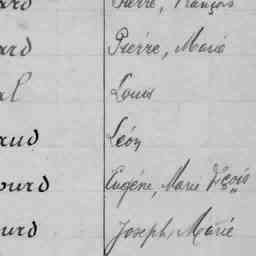 ard Pierre, François
ard Pierre, Marie
al Louis
aud Léon
ourd Eugène, Marie Fçois
ourd Joseph, Marie